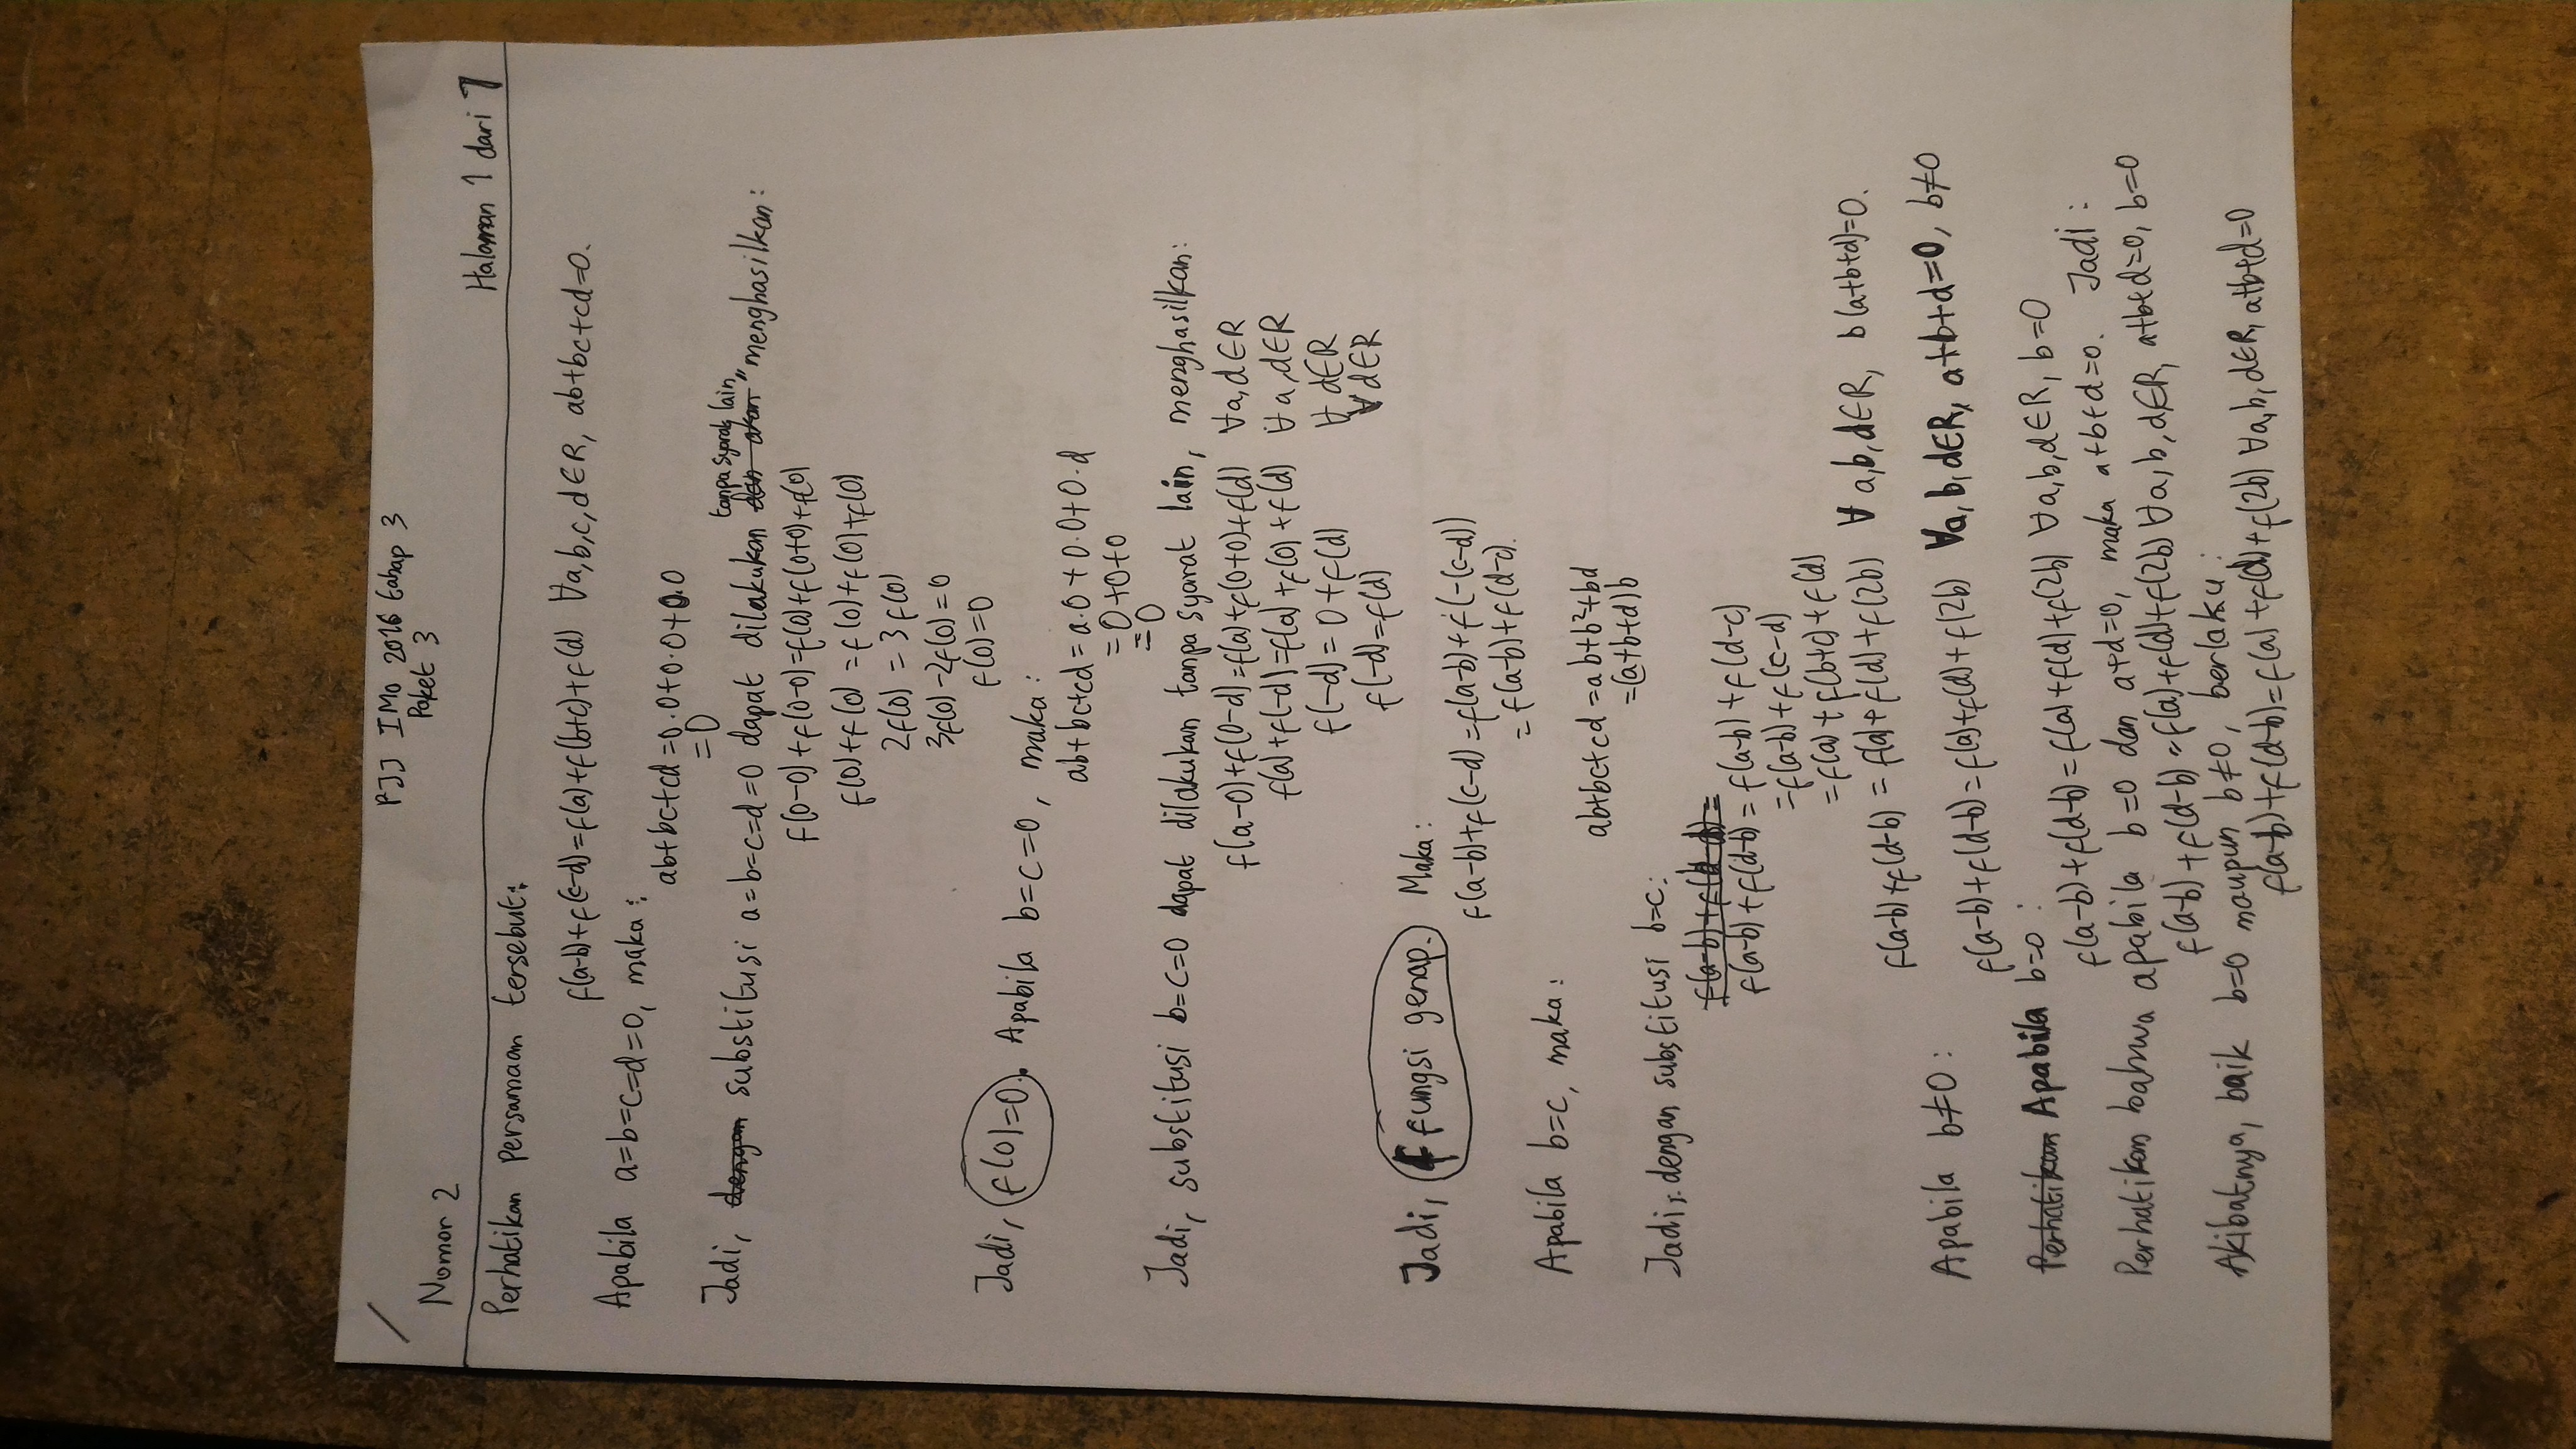 PJJ IMO 2016 tahap 3
Paket 3
Nomor 2
Halaman 1 dari 7
Perhatikan persamaan tersebut:
f(a-b)+f(c-d)=f(a)+f(b+c)+f(d) ∀a,b,c,d∈R, ab+bc+cd=0.
Apabila a=b=c=d=0, maka:
ab+bc+cd=0.0+0.0+0.0
=0
Jadi, dengan substitusi a=b=c=d=0 dapat dilakukan dan akan tanpa syarat lain, menghasilkan:
f(0-0)+f(0-0)=f(0)+f(0+0)+f(0)
f(0)+f(0)=f(0)+f(0)+f(0)
2f(0)=3f(0)
3f(0)-2f(0)=0
f(0)=0
Jadi, f(0)=0. Apabila b=c=0, maka:
ab+bc+cd=a.0+0.0+0.d
=0+0+0
=0
Jadi, substitusi b=c=0 dapat dilakukan tanpa syarat lain, menghasilkan:
f(a-0)+f(0-d)=f(a)+f(0+0)+f(d) ∀a,d∈R
f(a)+f(-d)=f(a)+f(0)+f(d) ∀a,d∈R
f(-d)=0+f(d) ∀d∈R
f(-d)=f(d) ∀d∈R
Jadi, f fungsi genap. Maka:
f(a-b)+f(c-d)=f(a-b)+f(-(c-d))
=f(a-b)+f(d-c).
Apabila b=c, maka:
ab+bc+cd=ab+b²+bd
=(a+b+d)b
Jadi, dengan substitusi b=c:
f(a-b)+f(d-b)=f(a-b)+f(d-c)
=f(a-b)+f(c-d)
=f(a)+f(b+c)+f(d)
f(a-b)+f(d-b)=f(a)+f(d)+f(2b) ∀a,b,d∈R, b(a+b+d)=0.
Apabila b≠0:
f(a-b)+f(d-b)=f(a)+f(d)+f(2b) ∀a,b,d∈R, a+b+d=0, b≠0
Perhatikan Apabila b=0:
f(a-b)+f(d-b)=f(a)+f(d)+f(2b) ∀a,b,d∈R, b=0
Perhatikan bahwa apabila b=0 dan a+d=0, maka a+b+d=0. Jadi:
f(a-b)+f(d-b)=f(a)+f(d)+f(2b) ∀a,b,d∈R, a+b+d=0, b=0
Akibatnya, baik b=0 maupun b≠0, berlaku:
f(a-b)+f(d-b)=f(a)+f(d)+f(2b) ∀a,b,d∈R, a+b+d=0